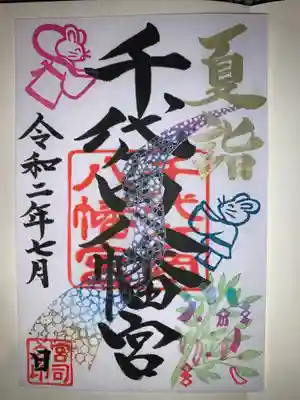 夏詣
千代八幡宮
八幡宮
令和二年七月
日
宮司